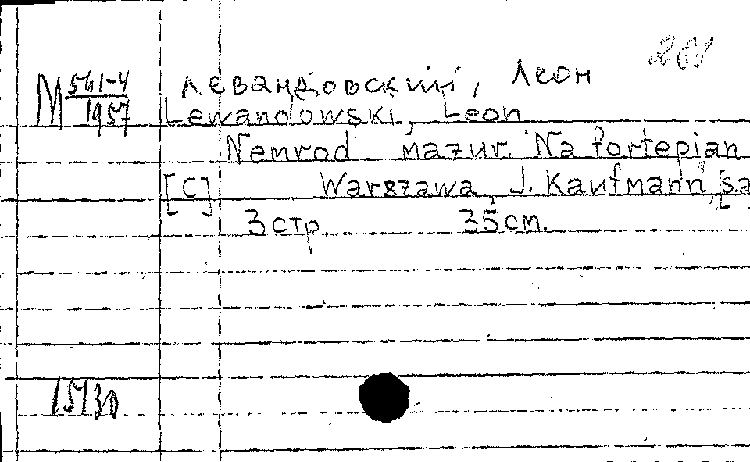 201
М 561-4/1957
Левандовский, Леон
Lewandowski, Leon
Nemrod mazur. Na fortepian
[C] Warszawa, J. Kaufmann, [sa
3 стр. 35 cm.